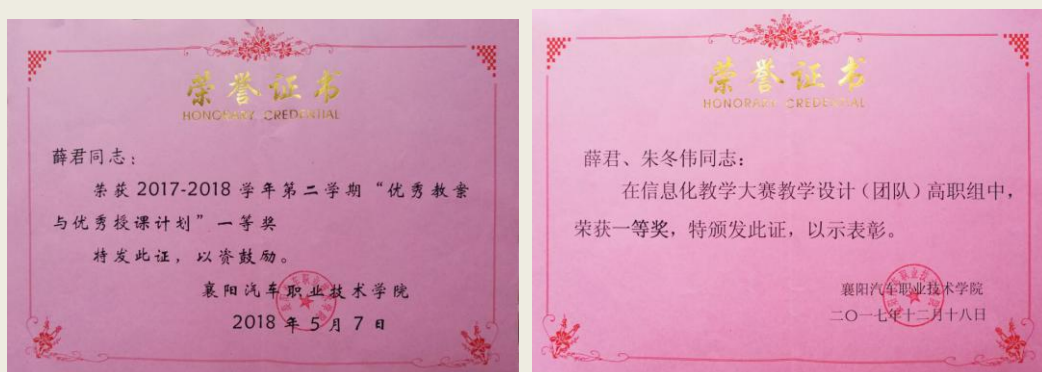 荣誉证书
HONORARY CREDENTIAL
薛君同志：
荣获 2017-2018 学年第二学期“优秀教案
与优秀授课计划”一等奖
特发此证，以资鼓励。
襄阳汽车职业技术学院
2018 年 5 月 7 日
荣誉证书
HONORARY CREDENTIAL
薛君、朱冬伟同志：
在信息化教学大赛教学设计（团队）高职组中，
荣获一等奖，特颁发此证，以示表彰。
襄阳汽车职业技术学院
二〇一七年十二月十八日